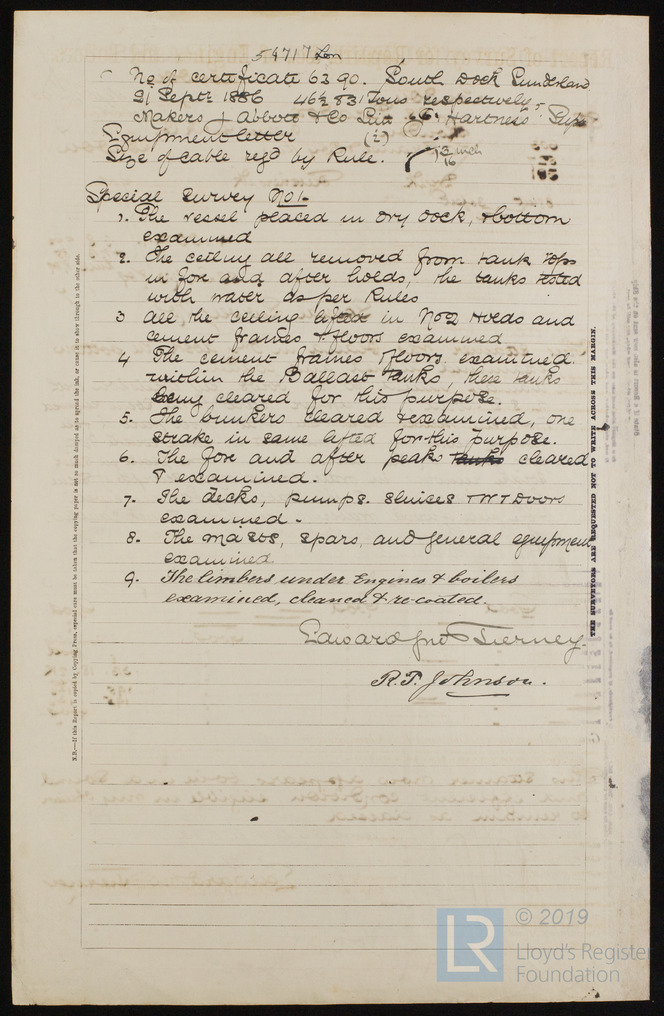 54717 Lon
No of certificate 6390. South Dock Sunderland
21 Septr 1886 46½ 83 1 Tons respectively
Makers J Abbott & Co Ltd T. Hartness Supt
Equipment letter (t)
Size of cable reqd by Rule. 1 13/16 inch
Special Survey No 1.
1. The vessel placed in dry dock, & bottom
examined
2. The ceiling all removed from tank tops
in fore and after holds, the tanks tested
with water as per Rules
3 all the ceiling lifted in No 2 Holds and
cement frames & floors examined
4 The cement frames floors examined
within the Ballast tanks, these tanks
being cleared for this purpose.
5. The bunkers cleared & examined, one
strake in same lifted for this purpose.
6. The fore and after peaks tanks cleared
& examined.
7. The decks, pumps. Sluices & W T Doors
examined -
8. The masts, spars, and general equipment
examined
9. The limbers under Engines & boilers
examined, cleaned & re-coated.
Edward Jno Tierney.
R. T. Johnson.
N.B.—If this Report is copied by Copying Press, especial care must be taken that the copying paper is not so much damped as to spread the ink, or cause it to show through to the other side.
THE SURVEYORS ARE REQUESTED NOT TO WRITE ACROSS THIS MARGIN.
LR
© 2019
Lloyd's Register
Foundation